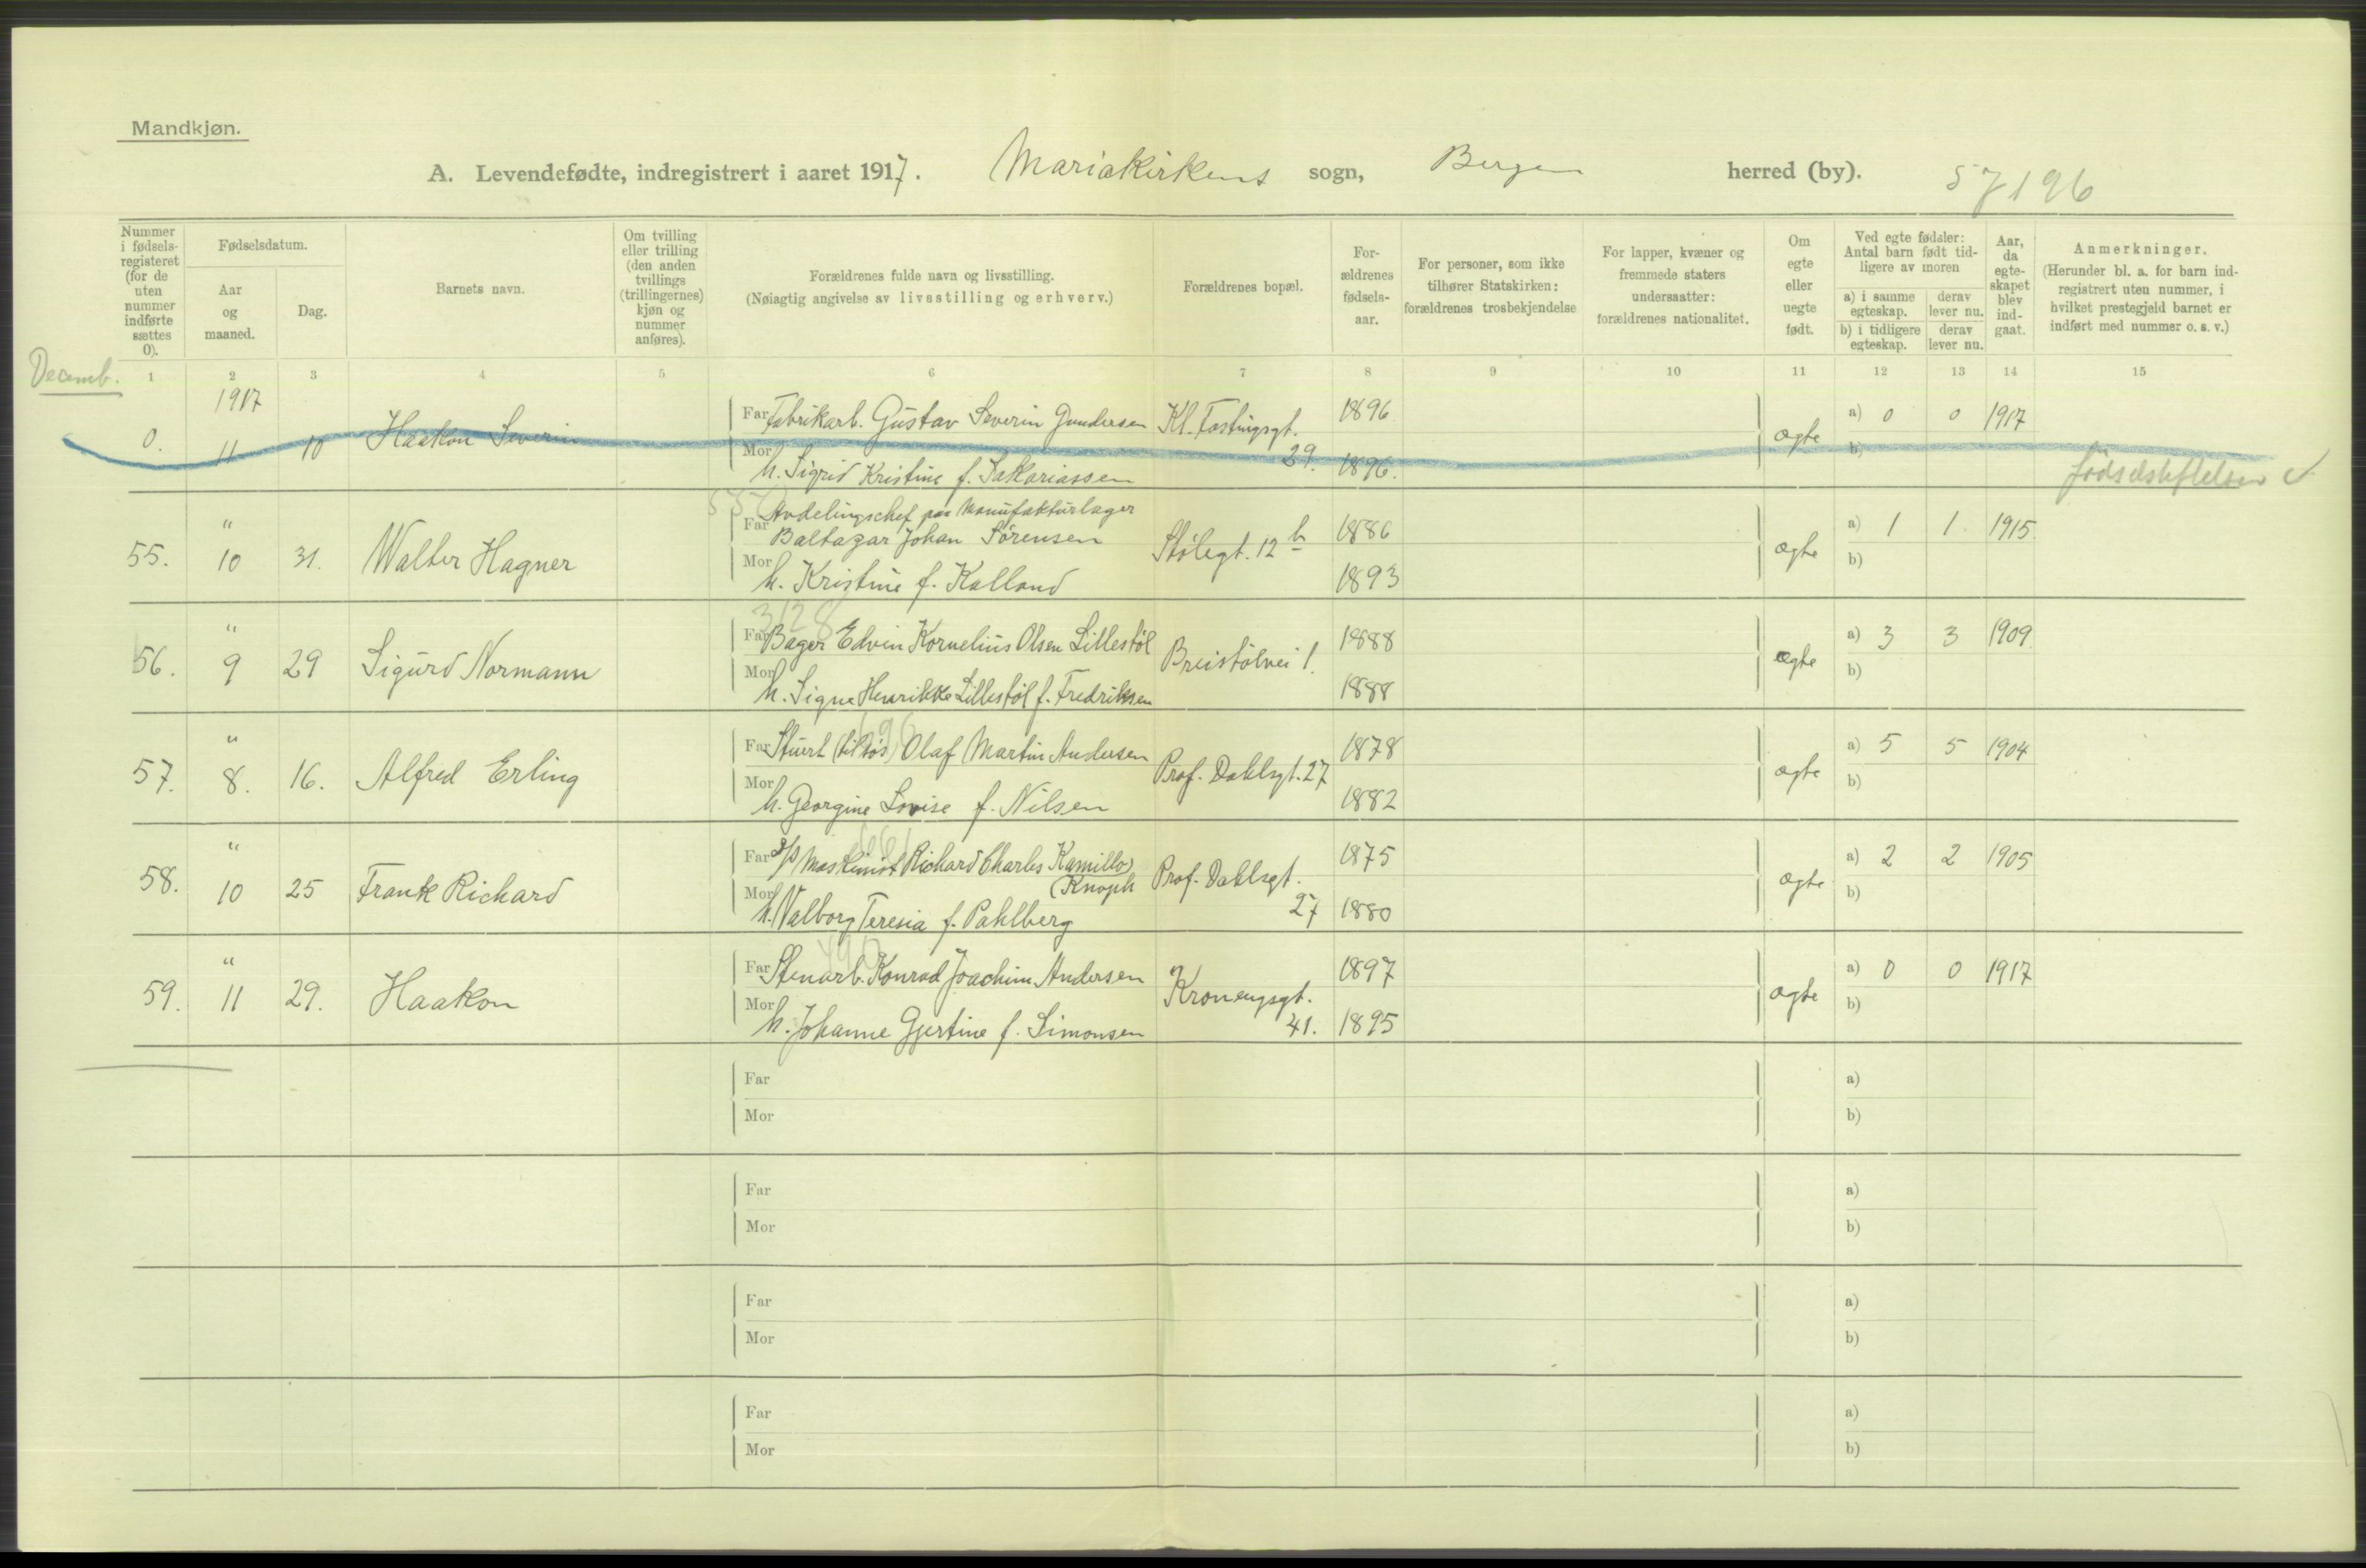 Mandkjøn.
A. Levendefødte, indregistrert i aaret 1917. Mariakirkens sogn, Bergen herred (by). 57196
Nummer i fødsels-registeret (for de uten nummer indførte sættes 0).
Fødselsdatum.
Aar og maaned.
Dag.
Barnets navn.
Om tvilling eller trilling (den anden tvillings (trillingernes) kjøn og nummer anføres).
Forældrenes fulde navn og livsstilling.
(Nøiagtig angivelse av livsstilling og erhverv.)
Forældrenes bopæl.
For-ældrenes fødsels-aar.
For personer, som ikke tilhører Statskirken: forældrenes trosbekjendelse
For lapper, kvæner og fremmede staters undersaatter: forældrenes nationalitet.
Om egte eller uegte født.
Ved egte fødsler: Antal barn født tid-ligere av moren
a) i samme egteskap. derav lever nu.
b) i tidligere egteskap. derav lever nu.
Aar, da egte-skapet blev ind-gaat.
Anmerkninger.
(Herunder bl. a. for barn ind-registrert uten nummer, i hvilket prestegjeld barnet er indført med nummer o. s. v.)
Decemb. 1 2 3 4 5 6 7 8 9 10 11 12 13 14 15
1917
0. 11 10 Haakon Severin
Far Fabrikarb. Gustav Severin Gundersen Kl. Fastingsgt. 1896 a) 0 0 1917
Mor h. Sigrid Kristine f. Sakariassen 29. 1896. ægte b)
" Avdelingschef paa Manufakturlager
55. 10 31. Walter Hagner
Far Baltazar Johan Sørensen Stølegt. 12 b 1886 a) 1 1. 1915.
Mor h. Kristine f. Kalland 1893 ægte b)
" 3128
56. 9 29 Sigurd Normann
Far Bager Edvin Kornelius Olsen Lillestøl Breistølvei 1. 1888 a) 3 3 1909.
Mor h. Signe Henrikke Lillestøl f. Fredriksen 1888 ægte b)
"
57. 8. 16. Alfred Erling
Far Stuert (tilsøs) Olaf Martin Andersen Prof. Dahlsgt. 27 1878 a) 5 5 1904
Mor h. Georgine Lovise f. Nilsen 1882 ægte b)
"
58. 10 25 Frank Richard
Far D/S Maskinist Richard Charles Kamillo Knoph Prof. Dahlsgt. 1875 a) 2 2 1905
Mor h. Valborg Teresia f. Pahlberg 27 1880 ægte b)
"
59. 11 29. Haakon
Far Stenarb. Konrad Joachim Andersen Kronengsgt. 1897 a) 0 0 1917
Mor h. Johanne Gjertine f. Simonsen 41. 1895 ægte b)
Far a)
Mor b)
Far a)
Mor b)
Far a)
Mor b)
Far a)
Mor b)